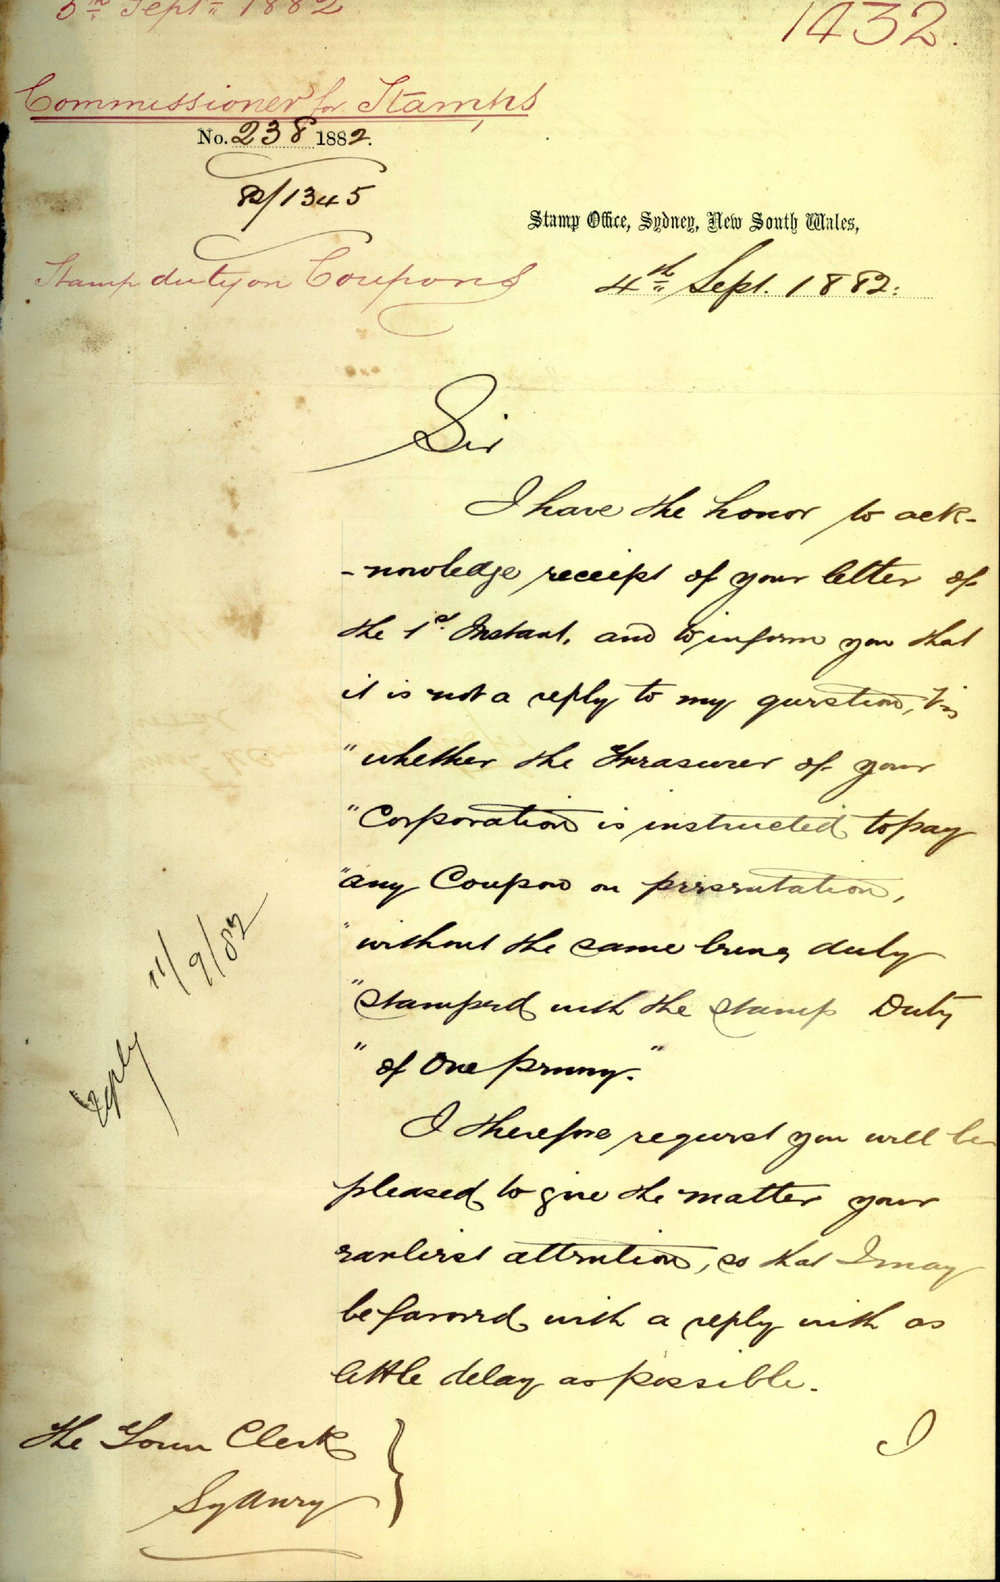 5th Sept 1882
1432.
Commissioner for Stamps
No. 238 1882.
82/1345
Stamp Office, Sydney, New South Wales,
Stamp duty on Coupons
4th Sept. 1882.
Sir
I have the honor to ack-
-nowledge receipt of your letter of
the 1st Instant, and to inform you that
it is not a reply to my question, Viz
"whether the Treasurer of your
"Corporation is instructed to pay
"any Coupon on presentation,
"without the same being duly
"stamped with the Stamp Duty
"of One penny."
I therefore request you will be
pleased to give the matter your
earliest attention, so that I may
be favored with a reply with as
little delay as possible.
I
The Town Clerk
Sydney
Reply 11/9/82